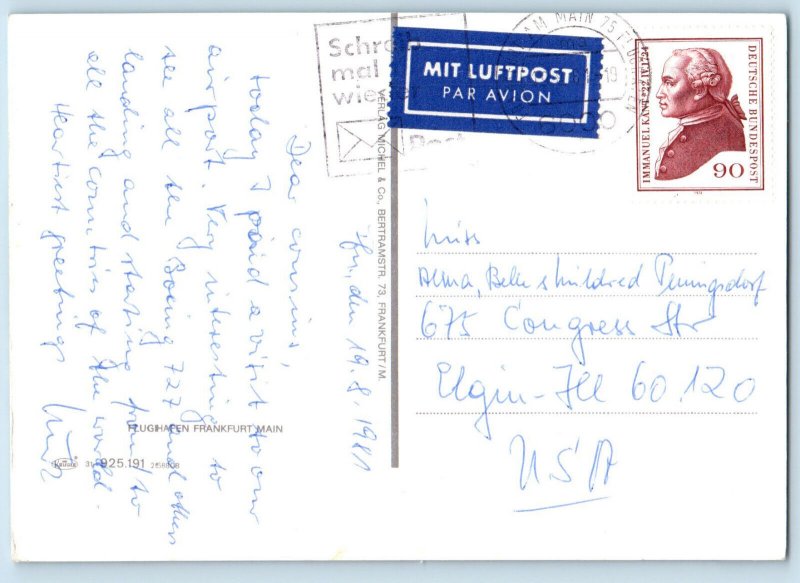 Dear cousins,
today I paid a visit to our
airport. Very interesting to
see all the Boeing 727 and others
landing and starting from/to
all the countries of the world.
Heartiest greetings
Ffm, den 19.8.1981
FLUGHAFEN FRANKFURT MAIN
925.191
VERLAG MICHEL & Co., BERTRAMSTR. 73, FRANKFURT/M.
mal
MIT LUFTPOST
PAR AVION
AM MAIN 75
IMMANUEL KANT
DEUTSCHE BUNDESPOST
90
Miss
Alma, Belle & Mildred Pennigsdorf
675 Congress Str
Elgin-Ill 60.120
USA